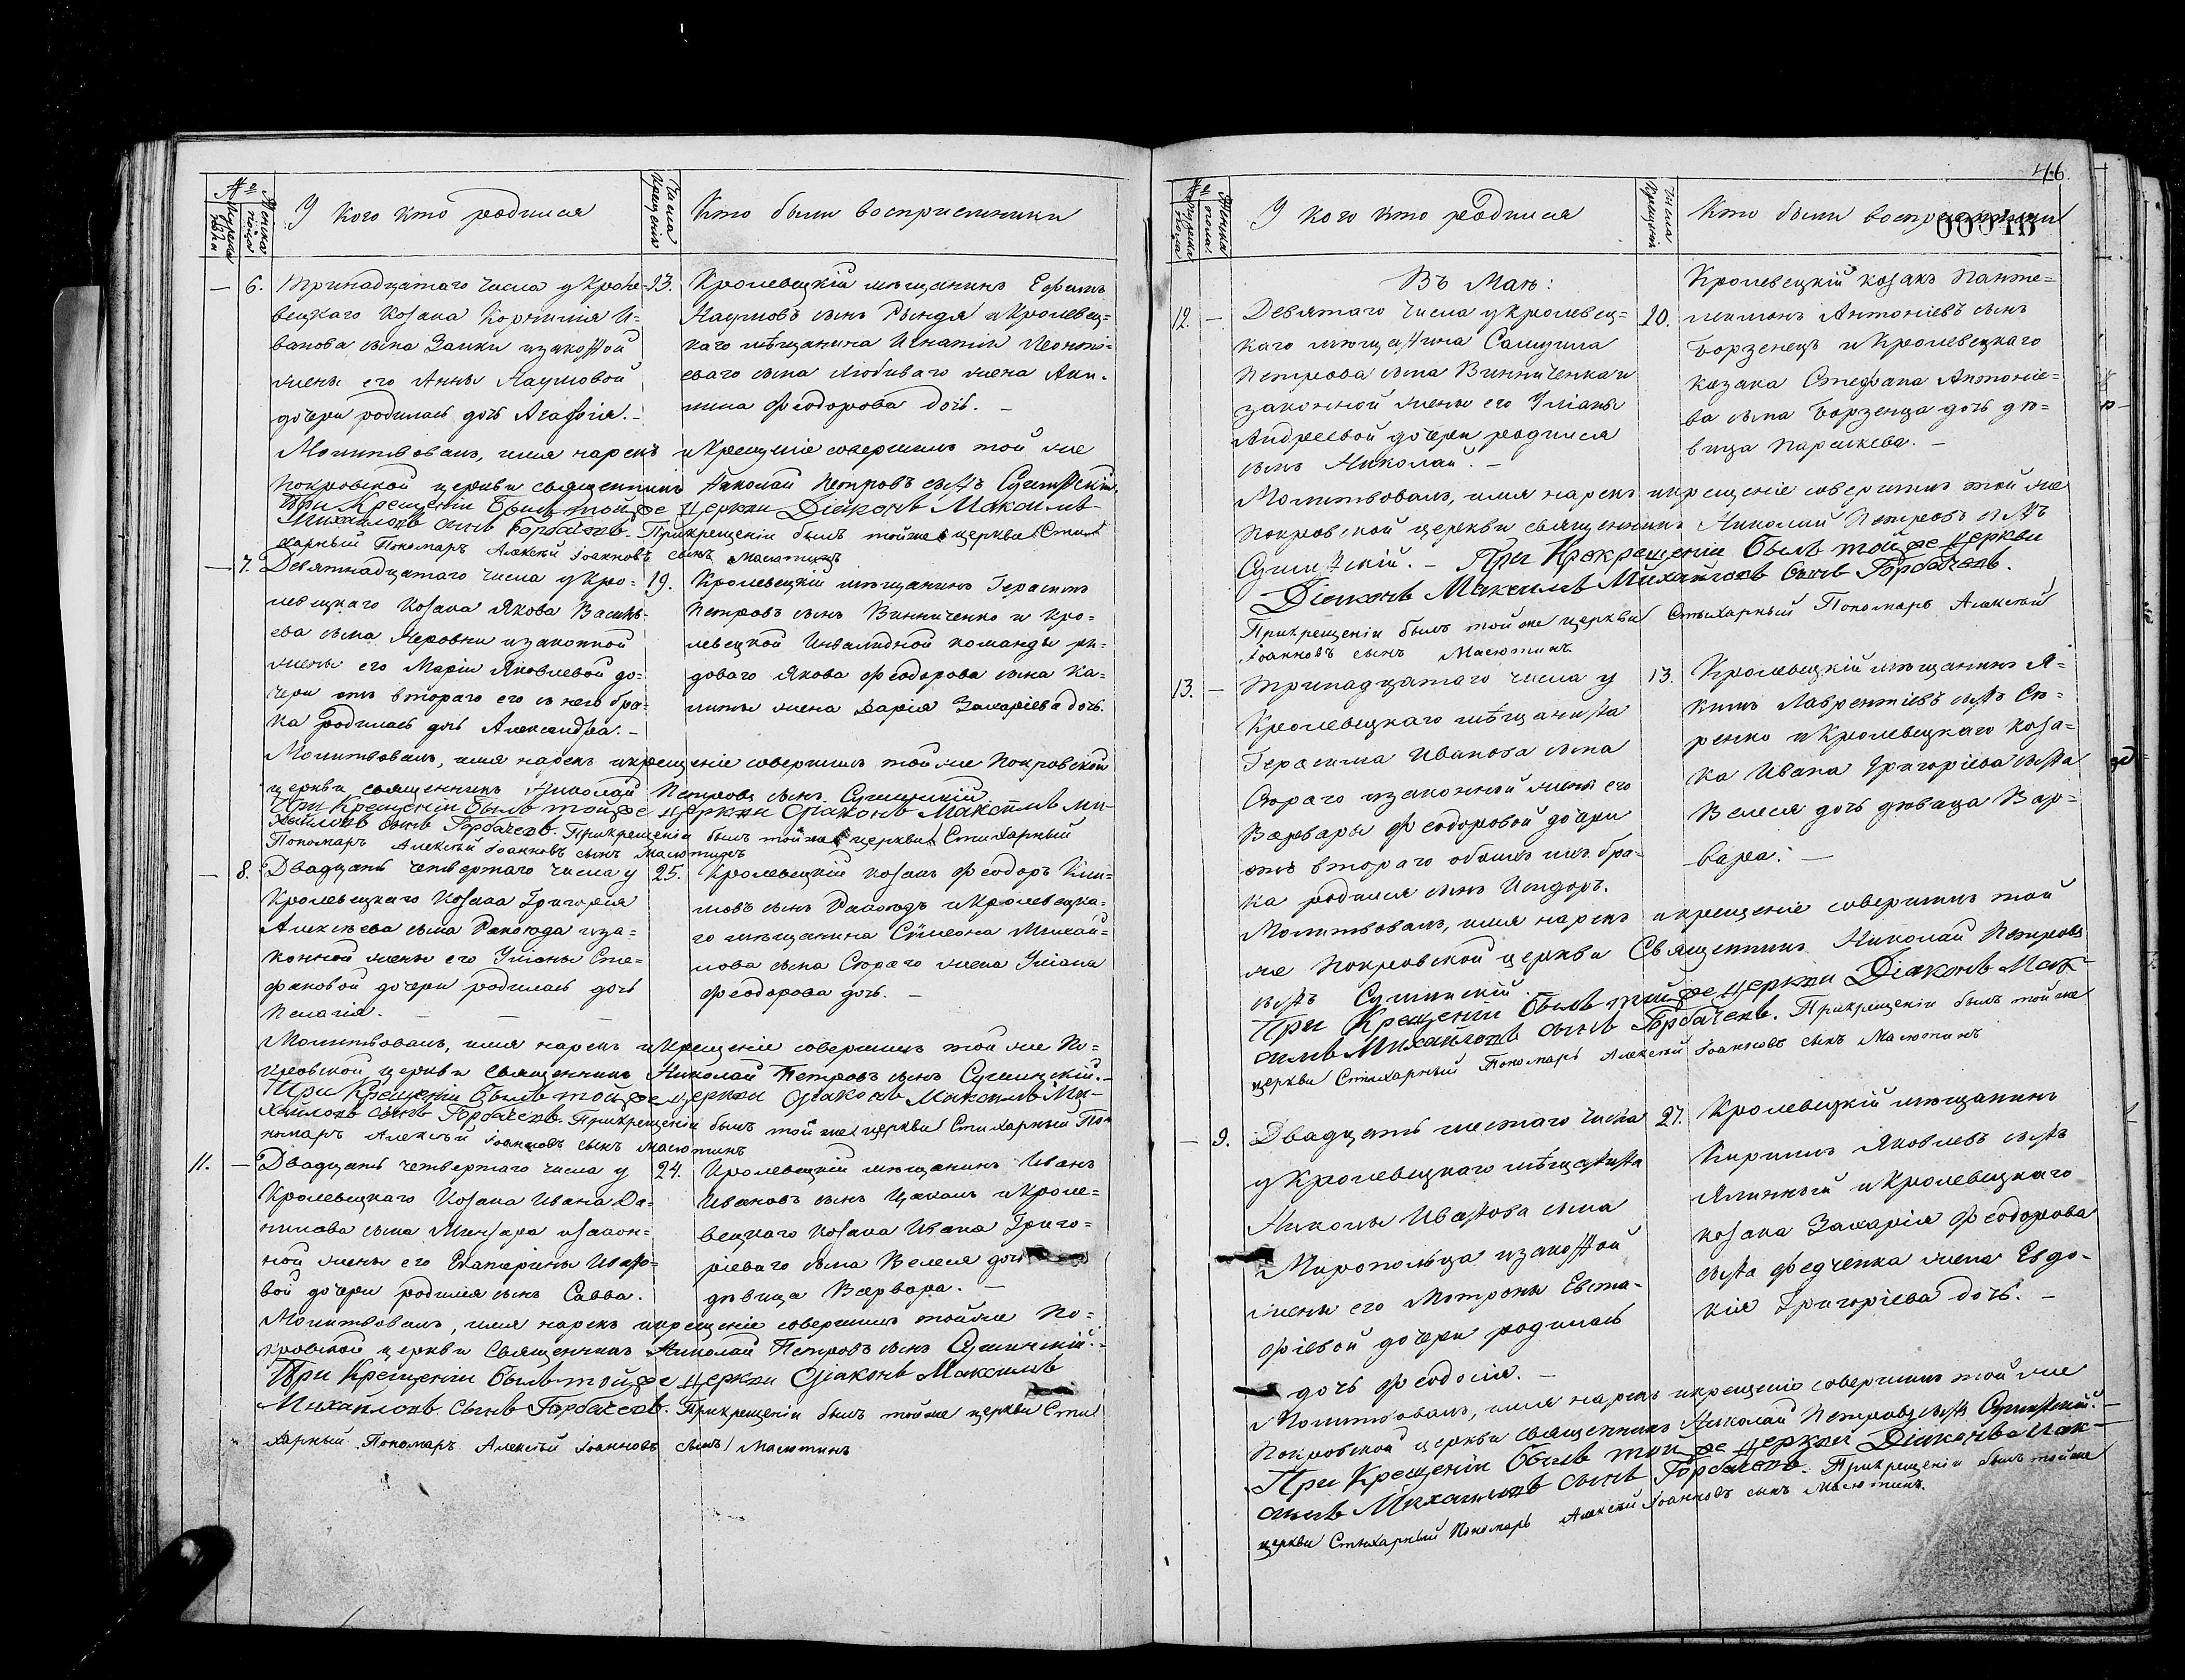 №
Мужеска пола
Женска пола
У кого кто родился
Числа крещенія
Кто были воспріемники
— 6. Тринадцатаго числа у Кроле-
вецкаго козака Корнилія И-
ванова сына Заики и законной
жены его Анны Наумовой
дочери родилась дочь Агафія. —
13. Кролевецкій мѣщанинъ Ефимъ
Наумовъ сынъ Рындя и Кролевец-
каго мѣщанина Игнатія Леонті-
еваго сына Любиваго жена Аки-
лина Феодорова дочь. —
Молитвовалъ, имя нарекъ и крещеніе совершилъ той же
Покровской церкви священникъ Николай Петровъ сынъ Сушинскій.
При Крещеніи былъ тойже церкви Діаконъ Максимъ
Михайловъ сынъ Горбачевъ. При крещеніи былъ тойже церкви Сти
харный Пономарь Алексѣй Іоанновъ сынъ Масютинъ
— 7. Девятнадцатаго числа у Кро-
левецкаго козака Якова Василь-
ева сына Неровни и законной
жены его Маріи Яковлевой до-
чери отъ втораго его с нею бра-
ка родилась дочь Александра. —
19. Кролевецкій мѣщанинъ Герасимъ
Петровъ сынъ Винниченко и Кро-
левецкой Инвалидной команды ря-
доваго Якова Феодорова сына Ка-
литы жена Дарія Захаріева дочь.
Молитвовалъ, имя нарекъ и крещеніе совершилъ той же Покровской
церкви священникъ Николай Петровъ сынъ Сушинскій
При Крещеніи былъ тойже церкви Діаконъ Максимъ Ми-
хайловъ сынъ Горбачевъ. При крещеніи былъ той же церкви Стихарный
Пономарь Алексѣй Іоанновъ сынъ Масютинъ
— 8. Двадцать четвертаго числа у
Кролевецкаго козака Григорія
Алексѣева сына Ракогода и за-
конной жены его Уліаны Сте-
фановой дочери родилась дочь
Пелагія. — — —
25. Кролевецкій козакъ Феодоръ Кли-
мовъ сынъ Ракогодъ и Кролевецка-
го мѣщанина Симеона Михай-
лова сына Сюраго жена Уліана
Феодорова дочь. —
Молитвовалъ, имя нарекъ и крещеніе совершилъ той же По-
кровской церкви священникъ Николай Петровъ сынъ Сушинскій. —
При Крещеніи былъ тойже церкви Діаконъ Максимъ Ми-
хайловъ сынъ Горбачевъ. При крещеніи былъ той же церкви Стихарный По-
номарь Алексѣй Іоанновъ сынъ Масютинъ
11. — Двадцать четвертаго числа у
Кролевецкаго козака Ивана Да-
нилова сына Линзара и закон-
ной жены его Екатерины Ивано-
вой дочери родился сынъ Савва.
24. Кролевецкій мѣщанинъ Иванъ
Ивановъ сынъ Цакалъ и Кроле-
вецкаго козака Ивана Григо-
ріеваго сына Велеся дочь
дѣвица Варвара. —
Молитвовалъ, имя нарекъ и крещеніе совершилъ тойже По-
кровской церкви священникъ Николай Петровъ сынъ Сушинскій. —
При Крещеніи былъ тойже церкви Діаконъ Максимъ
Михайловъ сынъ Горбачевъ. При крещеніи былъ тойже церкви Сти
харный Пономарь Алексѣй Іоанновъ сынъ Масютинъ
46
00046
№
Мужеска пола
Женска пола
У кого кто родился
Числа крещенія
Кто были воспріемники
Въ Маѣ:
12. — Девятаго числа у Кролевец-
каго мѣщанина Самуила
Петрова сына Винниченка и
законной жены его Уліаны
Андреевой дочери родился
сынъ Николай. —
10. Кролевецкій козакъ Панте-
леимонъ Антоніевъ сынъ
Борзенецъ и Кролевецкаго
козака Стефана Антоніе-
ва сына Борзенца дочь дѣ-
вица Параскева. —
Молитвовалъ, имя нарекъ и крещеніе совершилъ той же
Покровской церкви священникъ Николай Петровъ сынъ
Сушинскій. — При Крекрещеніи былъ тойже церкви
Діаконъ Максимъ Михайловъ сынъ Горбачевъ.
При крещеніи былъ той же церкви Стихарный Пономарь Алексѣй
Іоанновъ сынъ Масютинъ
13. — Тринадцатаго числа у
Кролевецкаго мѣщанина
Герасима Иванова сына
Сюраго и законной жены его
Варвары Феодоровой дочери
отъ втораго обоихъ ихъ бра-
ка родился сынъ Исидоръ.
13. Кролевецкій мѣщанинъ Я-
кимъ Лаврентіевъ сынъ Сю-
ренко и Кролевецкаго коза-
ка Ивана Григоріева сына
Велеся дочь дѣвица Вар-
вара. —
Молитвовалъ, имя нарекъ и крещеніе совершилъ той
же Покровской церкви Священникъ Николай Петровъ
сынъ Сушинскій.
При Крещеніи былъ тойже церкви Діаконъ Мак-
симъ Михайловъ сынъ Горбачевъ. При крещеніи былъ той же
церкви Стихарный Пономарь Алексѣй Іоанновъ сынъ Масютинъ
— 9. Двадцать шестаго числа
у Кролевецкаго мѣщанина
Никоны Иванова сына
Миропольца и законной
жены его Мотроны Евста-
фіевой дочери родилась
дочь Феодосія. —
27. Кролевецкій мѣщанинъ
Кириллъ Яковлевъ сынъ
Ялинный и Кролевецкаго
козака Захарія Феодорова
сына Федченка жена Евдо-
кія Григоріева дочь. —
Молитвовалъ, имя нарекъ и крещеніе совершилъ той же
Покровской церкви священникъ Николай Петровъ сынъ Сушинскій. —
При Крещеніи былъ тойже церкви Діаконъ Мак-
симъ Михайловъ сынъ Горбачевъ. При крещеніи былъ тойже
церкви Стихарный Пономарь Алексѣй Іоанновъ сынъ Масютинъ.